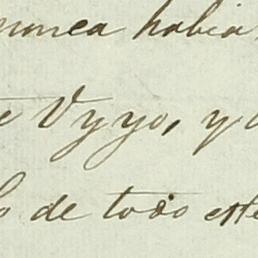 nunca habia
V y yo, y
de todo este